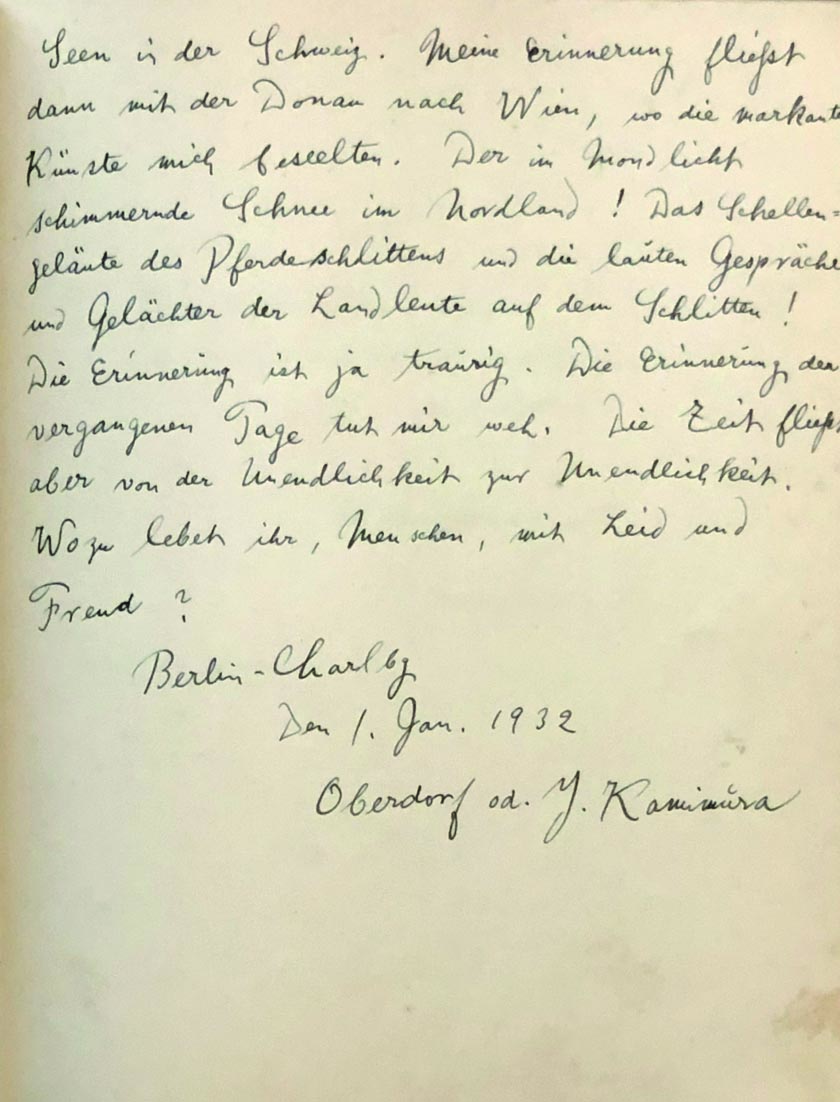 Seen in der Schweiz. Meine Erinnerung fließt
dann mit der Donau nach Wien, wo die markante
Künste mich beseelten. Der im Mondlicht
schimmernde Schnee im Nordland! Das Schellen=
geläute des Pferdeschlittens und die lauten Gespräche
und Gelächter der Landleute auf dem Schlitten!
Die Erinnerung ist ja traurig. Die Erinnerung der
vergangenen Tage tut mir weh. Die Zeit fließt
aber von der Unendlichkeit zur Unendlichkeit.
Wozu lebet ihr, Menschen, mit Leid und
Freud?
Berlin-Charlbg
Den 1. Jan. 1932
Oberdorf od. Y. Kamimura